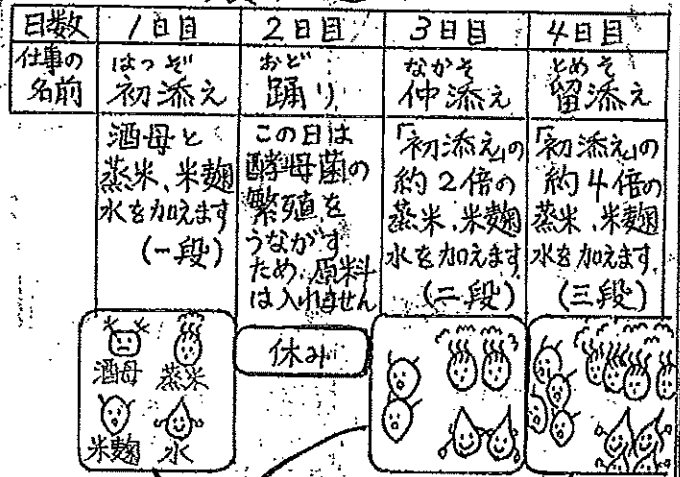 日数 1日目 2日目 3日目 4日目
はつぞ おどり なかそ とめそ
仕事の名前 初添え 踊り 仲添え 留添え
酒母と
蒸米、米麹
水を加えます
(一段)
この日は
酵母菌の
繁殖を
うながす
ため、原料
は入れません
「初添え」の
約2倍の
蒸米、米麹
水を加えます
(二段)
「初添え」の
約4倍の
蒸米、米麹
水を加えます
(三段)
酒母 蒸米
米麹 水
休み